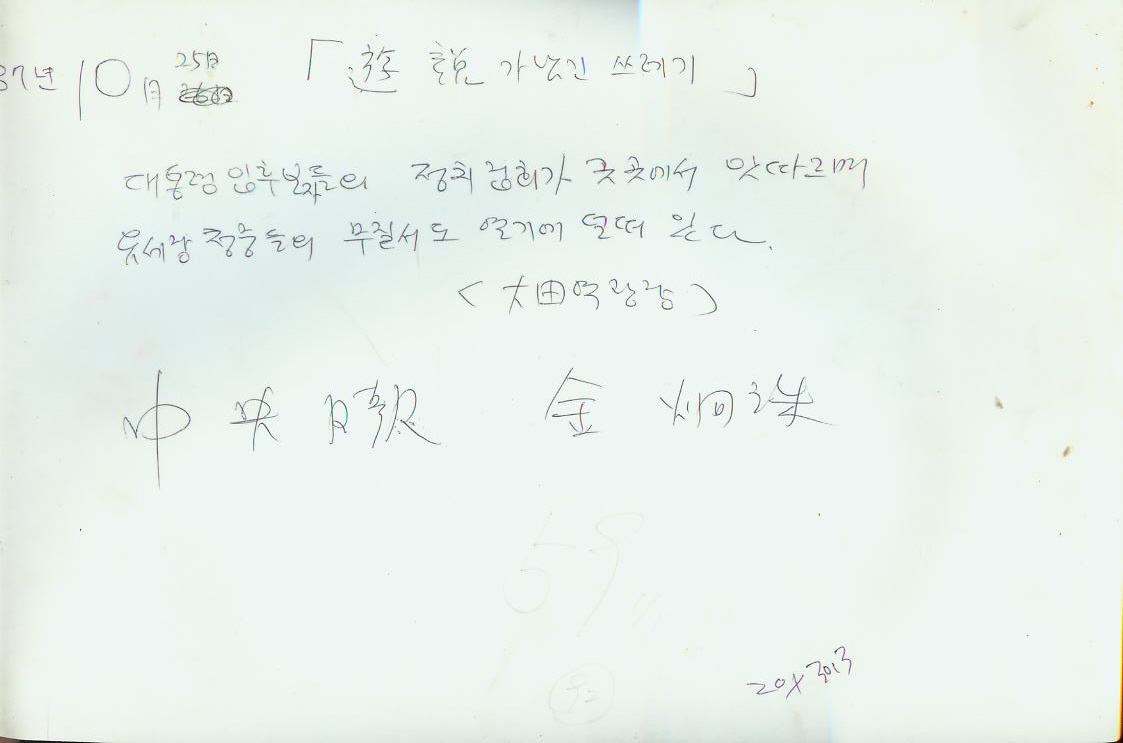 87년 10月 25日 「遊說가 남긴 쓰레기」
대통령 입후보자들의 정치 집회가 곳곳에서 잇따르며
유세장 청중들의 무질서도 열기에 덜떠 있다.
<大田역광장>
中央日報 金炯洙
59
20x30.3